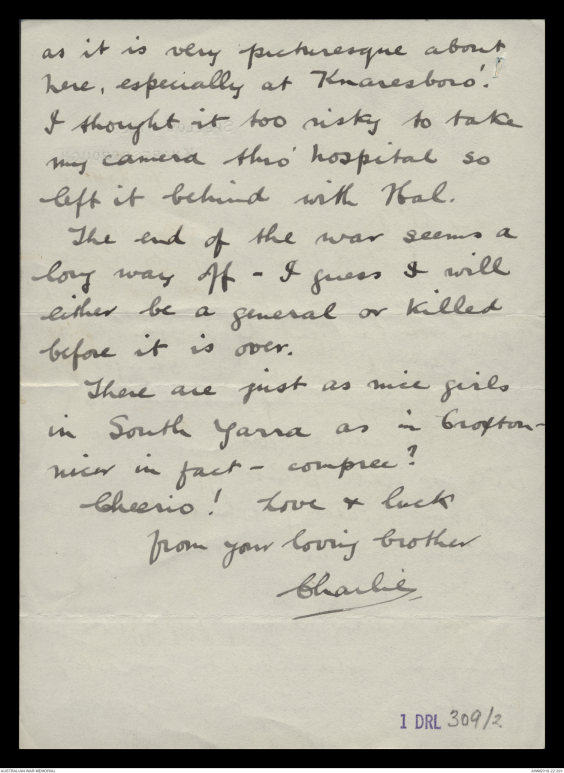 as it is very picturesque about
here, especially at Knaresboro'.
I thought it too risky to take
my camera thro' hospital so
left it behind with Hal.
The end of the war seems a
long way off - I guess I will
either be a general or killed
before it is over.
There are just as nice girls
in South Yarra as in Croxton -
nicer in fact - compree?
Cheerio! Love & luck
from your loving brother
Charlie
1 DRL 309/2
AUSTRALIAN WAR MEMORIAL